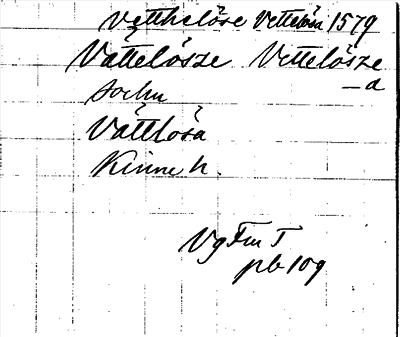 Vetthelöse Vettelösa 1579
Vättelösze Vettelösze
—a
Sochn
Vättlösa
Kinne h.
Vg Fm T
pb 109